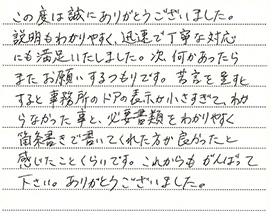 この度は誠にありがとうございました。
説明もわかりやすく、迅速で丁寧な対応
にも満足いたしました。次、何かあったら
またお願いするつもりです。苦言を呈すと
すると事務所のドアの表示が小さすぎて、わか
らなかった事と、必要書類をわかりやすく
箇条書きで書いてくれた方が良かったと
感じたことくらいです。これからもがんばって
下さい。ありがとうございました。